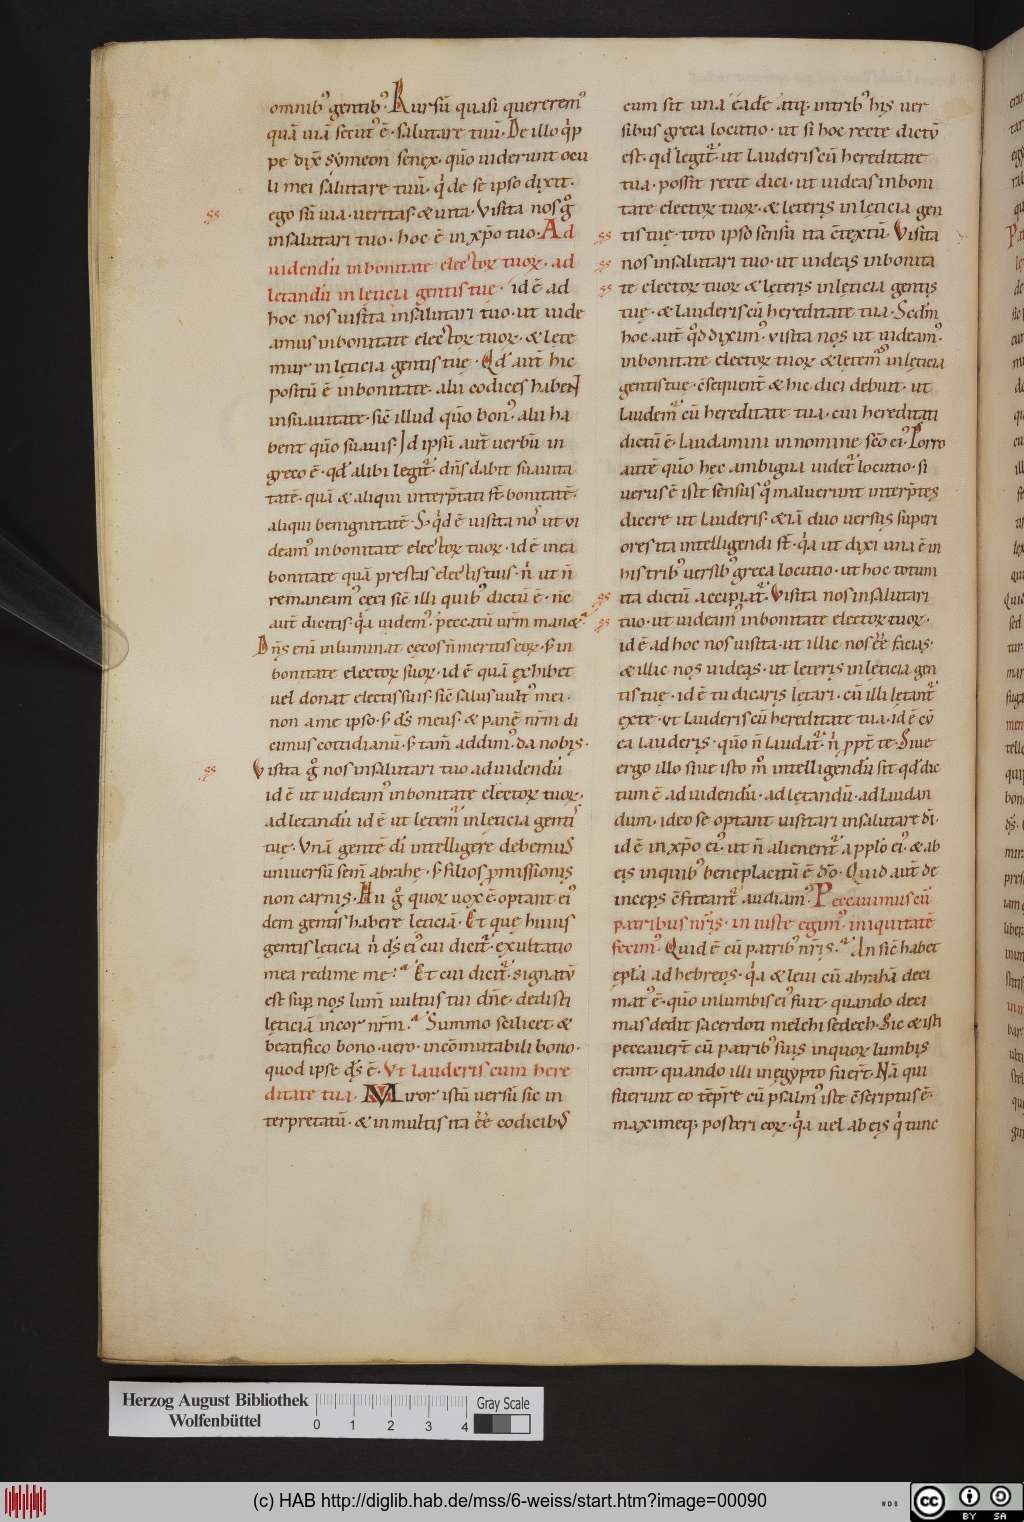 omnib᾽ gentib᾽. Rursū quasi quererem᾽
quā uiā secut᾽ ē. salutare tuū. De illo q̇pp
pe dix̄ symeon senex. quō uiderunt ocu
li mei salutare tuū. q̇ de se ipso dixit.
ego sū uia. ueritas. & uita. Visita nos g̊
in salutari tuo. hoc ē in xp̄o tuo. Ad
uidendū in bonitate electoꝝ tuoꝝ. ad
letandū in lęticia gentis tuę. id ē ad
hoc nos uisita in salutari tuo. ut uide
amus in bonitate electoꝝ tuoꝝ. & lęte
mur in lęticia gentis tuę. Qd̄ aut̄ hic
positū ē in bonitate. alii codices habent
in suauitate. sic̄ illud quō bon᾽. alii ha
bent quō suauis. Id ipsū aut̄ uerbū in
greco ē. qd̄ alibi legit᷑. dn̄s dabit suauita
tatē. quā & aliqui interp̄tati st̄ bonitatē.
aliqui benignitatē. S; q̇d ē uisita nos ut ui
deam᾽ in bonitate electoꝝ tuoꝝ. id ē in ea
bonitate quā prestas electis tuis. n̄ ut n̄
remaneam᾽ cęci sic̄ illi quib᾽ dictū ē. nc̄
aut̄ dicitis. q̇a uidem᾽. peccatū ur̄m man&.
Dn̄s enī illuminat cęcos n̄ meritis eoꝝ. s; in
bonitate electoꝝ suoꝝ. id ē quā exhibet
uel donat electis suis. sic̄ salus uult᾽ mei.
non a me ipso. s; d̄s meus. & panē nr̄m di
cimus cottidianū. s; tam̄ addim᾽. da nobis.
Visita g̊ nos in salutari tuo ad uidendū
id ē ut uideam᾽ in bonitate electoꝝ tuoꝝ.
ad letandū id ē ut lętem᷑ in lęticia genti᾽
tuę. Vnā gentē dī intelligere debemus
uniuersū sem̄ abrahę. s; filios p̄missionis
non carnis. An g̊ quoꝝ uox ē optant ei᾽
dem gentis habere lęticiā. Et que huius
gentis lęticia n̄ d̄s ei᾽ cui dicit᷑. exultatio
mea redime me? Et cui dicit᷑. signatū
est sup nos lum̄ uultus tui dn̄e. dedisti
lęticiā in cor nr̄m. Summo scilicet &
beatifico bono. uero. incōmutabili bono.
quod ipse d̄s ē. Vt lauderis cum here
ditate tua. Miror istū uersū sic in
terpretatū. & in multis ita ēē codicibus
cum sit una eadē atq; in trib᾽ his uer
sibus greca locutio. ut si hoc recte dictū
est. qd̄ legit᷑. ut lauderis cū hereditate
tua. possit recte dici. ut uideas in boni
tate electoꝝ tuoꝝ. & leteris in lęticia gen
tis tuę. toto ipso sensu ita c̄textū. Visita
nos in salutari tuo. ut uideas in bonita
te electoꝝ tuoꝝ & lęteris in lęticia gentis
tuę. & lauderis cū hereditate tua. Secdm̄
hoc aut̄ qd diximus᾽. uisita nos ut uideam᾽.
in bonitate electoꝝ tuoꝝ & lętem᷑ in lęticia
gentis tuę. c̄sequent̄ & hic dici debuit. ut
laudem᷑ cū hereditate tua. cui hereditati
dictū ē. laudamini in nomine sc̄o ei᾽. Porro
autē quō hęc ambigua uidet᷑ locutio. si
uerus ē iste sensus q̄ maluerunt interp̄tes
dicere ut lauderis. & iā duo uersus superi
ores ita intelligendi st̄. q̇a ut dixi una ē in
his trib᾽ uersib᾽ greca locutio. ut hoc totum
ita dictū accipiat᷑. Visita nos in salutari
tuo. ut uideam᾽ in bonitate electoꝝ tuoꝝ.
id ē ad hoc nos uisita. ut illic nos ēē facias.
& illic nos uideas. ut leteris in lęticia gen
tis tuę. id ē tu dicaris lętari. cū illi lętant᷑
ex te. Vt lauderis cū hereditate tua. id ē cū
ea lauderis. quō n̄ laudat᷑. n̄ ppt̄ te. Siue
ergo illo siue isto m̊ intelligendū sit qd̄ dic
tum ē ad uidendū. ad lętandū. ad laudan
dum. ideo se optant uisitari in salutare dī.
id ē in xp̄o ei᾽. ut n̄ alienent᷑ a pplo ei᾽. & ab
eis in quib᾽ beneplacitū ē dō. Quid aut̄ de
inceps c̄fiteant᷑ audiam᾽. Peccauimus cū
patribus nr̄is. iniuste egim᾽. iniquitatē
fecim᾽. Quid ē cū patrib᾽ nr̄is. An sic̄ habet
epl̄a ad hebreos. q̇a & leui cū abrahā deci
mat᾽ ē. quō in lumbis ei᾽ fuit. quando deci
mas dedit sacerdoti melchisedech. Sic & isti
peccauer̄t cū patrib᾽ suis in quoꝝ lumbis
erant. quando illi in egypto fuer̄t. Nā qui
fuerunt eo tēp̄re cū psalm᾽ iste c̄scriptus ē.
maximeq; posteri eoꝝ. q̇a uel ab eis q̇ tunc
Herzog August Bibliothek
Wolfenbüttel
0 1 2 3 4
Gray Scale
(c) HAB http://diglib.hab.de/mss/6-weiss/start.htm?image=00090
cc BY SA